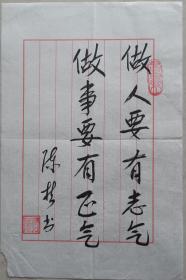 做人要有志气
做事要有正气
陈彬书